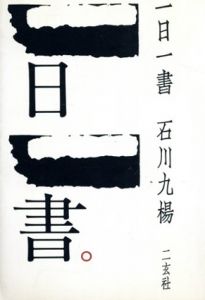 一日一書 石川九楊 二玄社
一日一書。